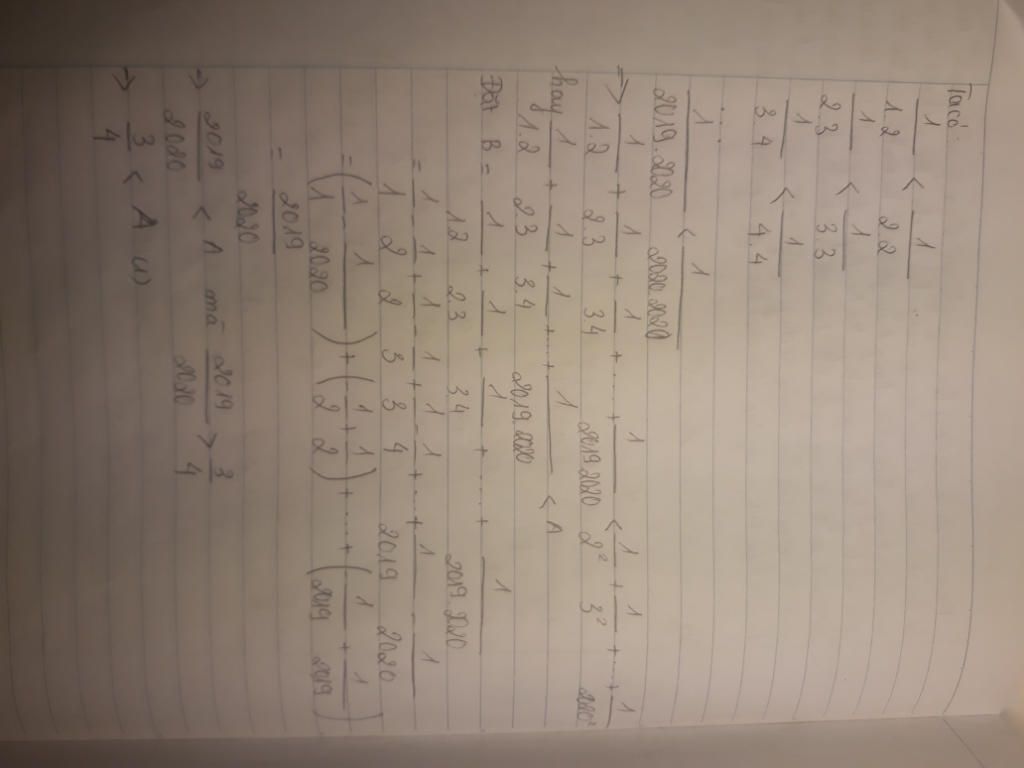 Ta có:
1/1.2 < 1/2.2
1/2.3 < 1/3.3
1/3.4 < 1/4.4
...
1/2019.2020 < 1/2020.2020
=> 1/1.2 + 1/2.3 + 1/3.4 + ... + 1/2019.2020 < 1/2² + 1/3² + ... + 1/
hay 1/1.2 + 1/2.3 + 1/3.4 + ... + 1/2019.2020 < A
Đặt B = 1/1.2 + 1/2.3 + 1/3.4 + ... + 1/2019.2020
= 1/1 - 1/2 + 1/2 - 1/3 + 1/3 - 1/4 + ... + 1/2019 - 1/2020
= (1/1 - 1/2020) + (-1/2 + 1/2) + ... + (-1/2019 + 1/2019)
= 2019/2020
=> 2019/2020 < A mà 2019/2020 > 3/4
=> 3/4 < A (1)